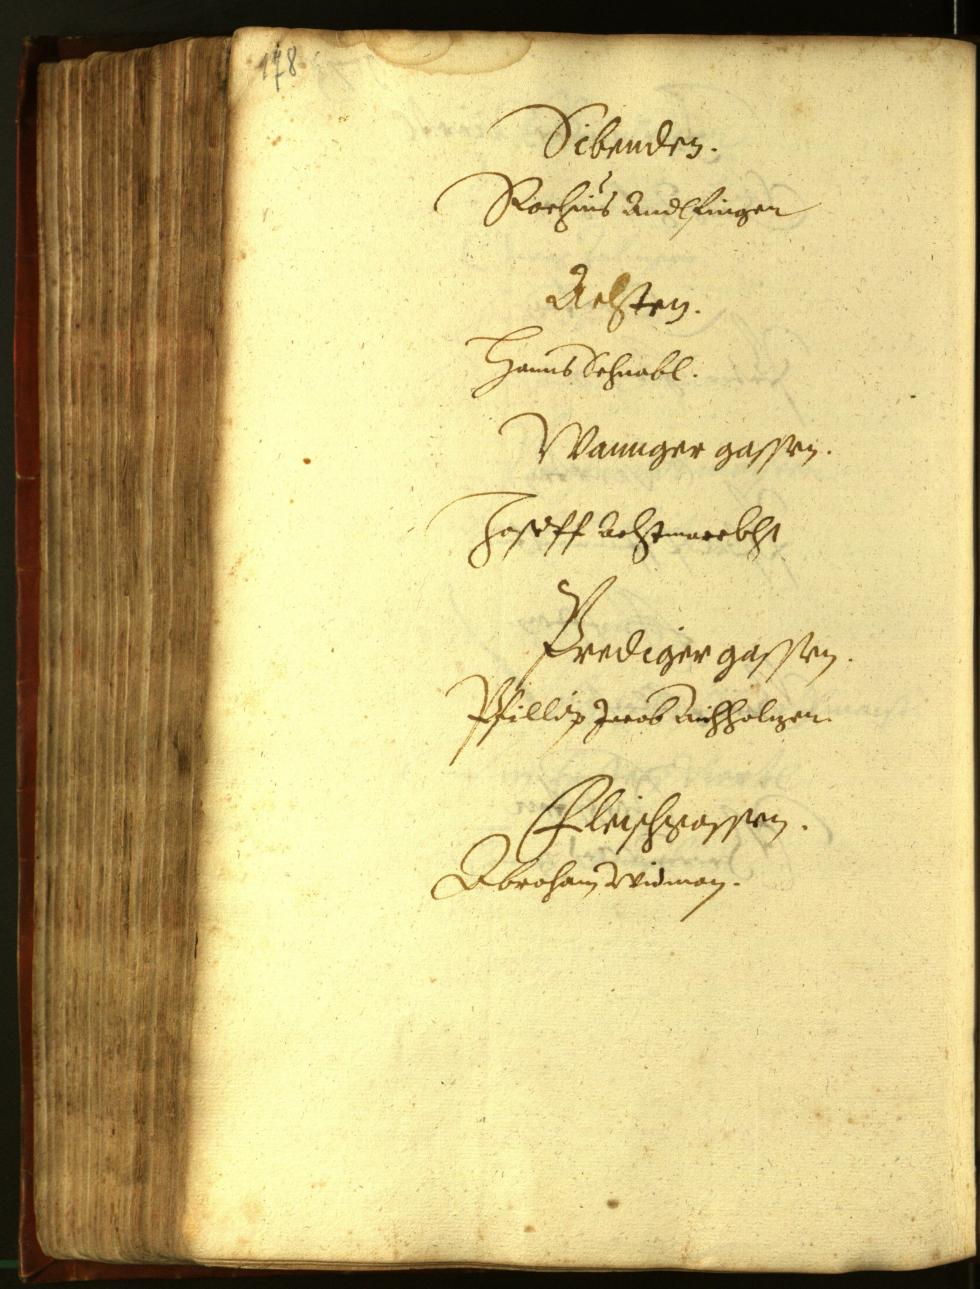 178
Sibenden.
Rochius Andlfinger
Achten.
Hanns Schnabl.
Wannger gassen.
Joseff
Prediger gassen.
Phillip Jacob Aichholzer.
Fleischgassen.
Abraham Widman.